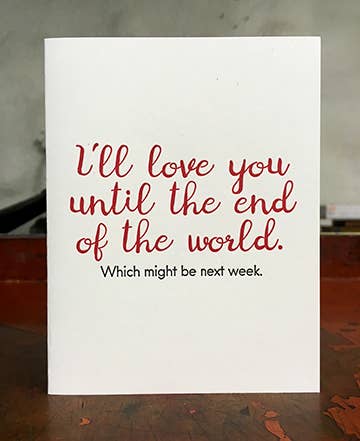 I'll love you
until the end
of the world.
Which might be next week.